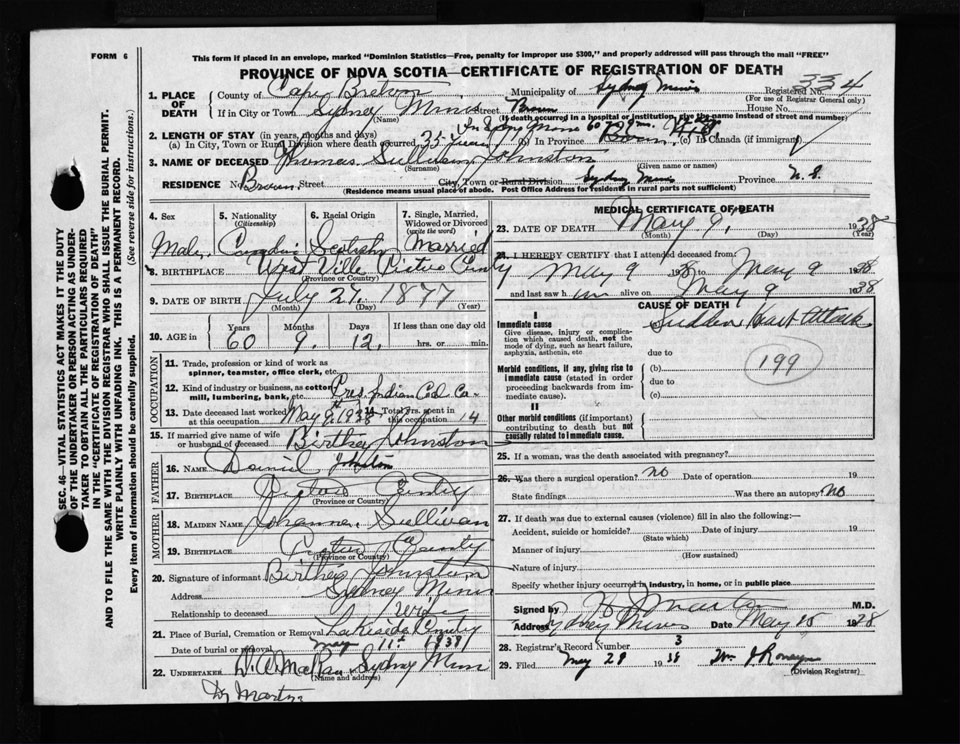 FORM 6
This form if placed in an envelope, marked "Dominion Statistics—Free, penalty for improper use $300," and properly addressed will pass through the mail "FREE"
PROVINCE OF NOVA SCOTIA—CERTIFICATE OF REGISTRATION OF DEATH
1. PLACE OF DEATH
County of Cape Breton Municipality of Sydney Mines Registered No. 334
(For use of Registrar General only)
If in City or Town Sydney Mines Street Brown House No.
(Name) (If death occurred in a hospital or institution, give the name instead of street and number)
2. LENGTH OF STAY (in years, months and days)
(a) In City, Town or Rural Division where death occurred 35 years (b) In Province (c) In Canada (if immigrant)
3. NAME OF DECEASED Thomas Sullivan Johnston
(Surname) (Given name or names)
RESIDENCE No. Brown Street City, Town or Rural Division Sydney Mines Province N. S.
(Residence means usual place of abode. Post Office Address for residents in rural parts not sufficient)
SEC. 46—VITAL STATISTICS ACT MAKES IT THE DUTY
OF THE UNDERTAKER OR PERSON ACTING AS UNDER-
TAKER TO OBTAIN ALL THE PARTICULARS REQUIRED
IN THE "CERTIFICATE OF REGISTRATION OF DEATH"
AND TO FILE THE SAME WITH THE DIVISION REGISTRAR WHO SHALL ISSUE THE BURIAL PERMIT.
WRITE PLAINLY WITH UNFADING INK. THIS IS A PERMANENT RECORD.
Every item of information should be carefully supplied. (See reverse side for instructions.)
4. Sex 5. Nationality (Citizenship) 6. Racial Origin 7. Single, Married, Widowed or Divorced (write the word)
Male Scotish Married
8. BIRTHPLACE West Ville Pictou
(Province or Country)
9. DATE OF BIRTH July 27, 1877
(Month) (Day) (Year)
10. AGE in Years Months Days If less than one day old
60 9 12 hrs. or min.
OCCUPATION
11. Trade, profession or kind of work as spinner, teamster, office clerk, etc.
12. Kind of industry or business, as cotton mill, lumbering, bank, etc.
13. Date deceased last worked at this occupation May 1938 14. Total yrs. spent in this occupation 14
15. If married give name of wife or husband of deceased Birtha Johnston
FATHER
16. NAME Daniel Johnston
17. BIRTHPLACE Pictou County
(Province or Country)
MOTHER
18. MAIDEN NAME Sullivan
19. BIRTHPLACE Pictou County
(Province or Country)
20. Signature of informant Birtha Johnston
Address Sydney Mines
Relationship to deceased Wife
21. Place of Burial, Cremation or Removal Lakeside
Date of burial or removal May 11th 1938
22. UNDERTAKER Sydney Mines
(Name and address)
MEDICAL CERTIFICATE OF DEATH
23. DATE OF DEATH May 9, 1938
(Month) (Day) (Year)
24. I HEREBY CERTIFY that I attended deceased from:
May 9 1938 to May 9 1938
and last saw him alive on May 9 1938
CAUSE OF DEATH
I
Immediate cause
Give disease, injury or complication which caused death, not the mode of dying, such as heart failure, asphyxia, asthenia, etc
Sudden Heart Attack
due to
Morbid conditions, if any, giving rise to immediate cause (stated in order proceeding backwards from immediate cause).
(b)
due to
(c)
199
II
Other morbid conditions (if important) contributing to death but not causally related to immediate cause.
25. If a woman, was the death associated with pregnancy?
26. Was there a surgical operation? no Date of operation 19
State findings Was there an autopsy? no
27. If death was due to external causes (violence) fill in also the following:—
Accident, suicide or homicide? Date of injury 19
(State which)
Manner of injury
(How sustained)
Nature of injury
Specify whether injury occurred in industry, in home, or in public place
Signed by M.D.
Address Sydney Mines Date May 1938
28. Registrar's Record Number 3
29. Filed May 29 1938
(Division Registrar)